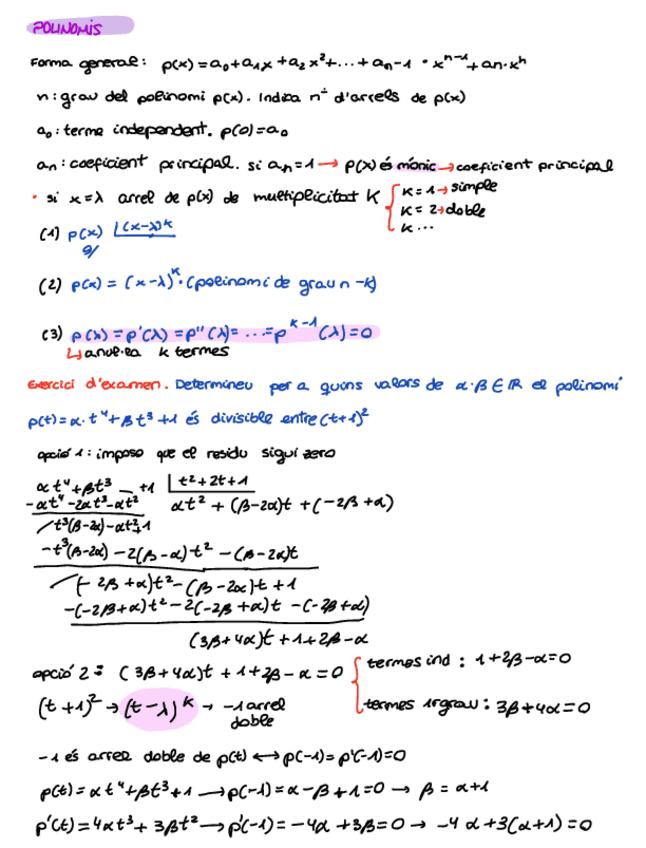 POLINOMIS
Forma general: p(x)=a₀+a₁x+a₂x²+...+aₙ-1 · xⁿ⁻¹+an·xⁿ
n: grau del polinomi p(x). Indica nº d'arrels de p(x)
a₀: terme independent. p(0)=a₀
an: coeficient principal. si aₙ=1 → p(x) és mònic → coeficient principal
· si x=λ arrel de p(x) de multiplicitat K { K=1→simple
K=2→doble
K...
(1) p(x) |(x-λ)ᵏ
(2) p(x) = (x-λ)ᵏ·(polinomi de grau n-k)
(3) p(λ)=p'(λ)=p''(λ)=...=pᵏ⁻¹(λ)=0
↳anul·la k termes
Exercici d'examen. Determineu per a quins valors de α·β∈ℝ el polinomi
p(t)=α·t⁴+βt³+1 és divisible entre (t+1)²
opció 1: imposo que el residu sigui zero
αt⁴+βt³ +1 | t²+2t+1
-αt⁴-2αt³-αt² αt²+(β-2α)t+(-2β+α)
/ t³(β-2α)-αt²+1
-t³(β-2α)-2(β-α)t²-(β-2α)t
/ (-2β+α)t²-(β-2α)t+1
-(-2β+α)t²-2(-2β+α)t-(-2β+α)
(3β+4α)t+1+2β-α
opció 2: (3β+4α)t+1+2β-α=0 { termes ind: 1+2β-α=0
termes 1r grau: 3β+4α=0
(t+1)²→(t-λ)ᵏ→ -1 arrel
doble
-1 és arrel doble de p(t) ↔ p(-1)=p'(-1)=0
p(t)=αt⁴+βt³+1 → p(-1)=α-β+1=0 → β=α+1
p'(t)=4αt³+3βt² → p'(-1)=-4α+3β=0 → -4α+3(α+1)=0